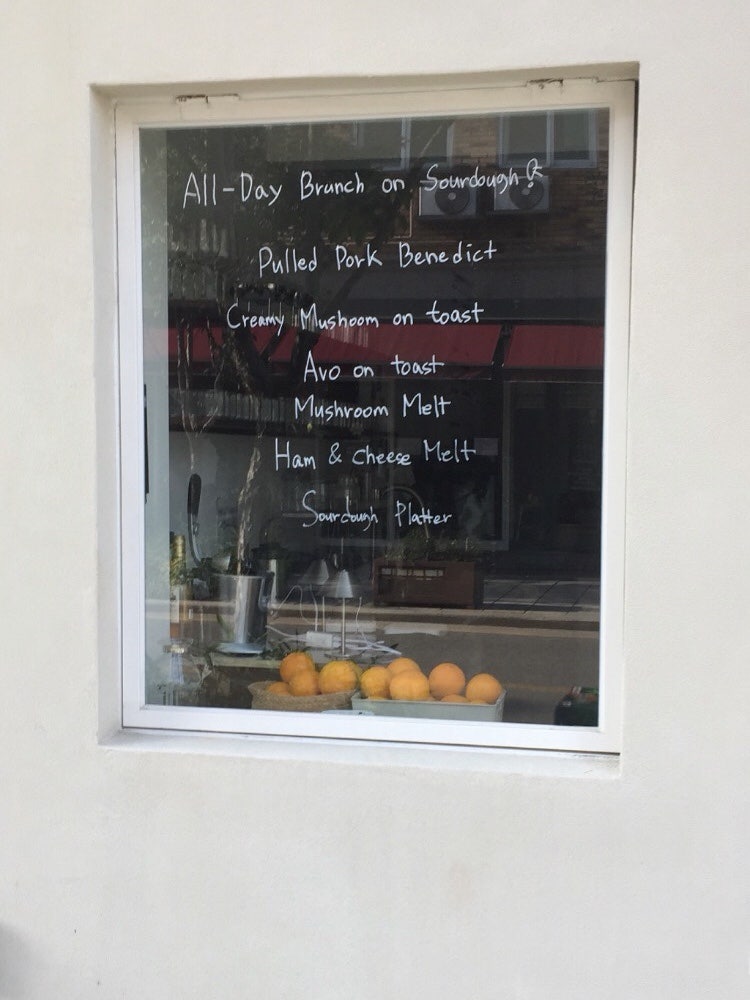 All-Day Brunch on Sourdough?
Pulled Pork Benedict
Creamy Mushoom on toast
Avo on toast
Mushroom Melt
Ham & cheese Melt
Sourdough Platter